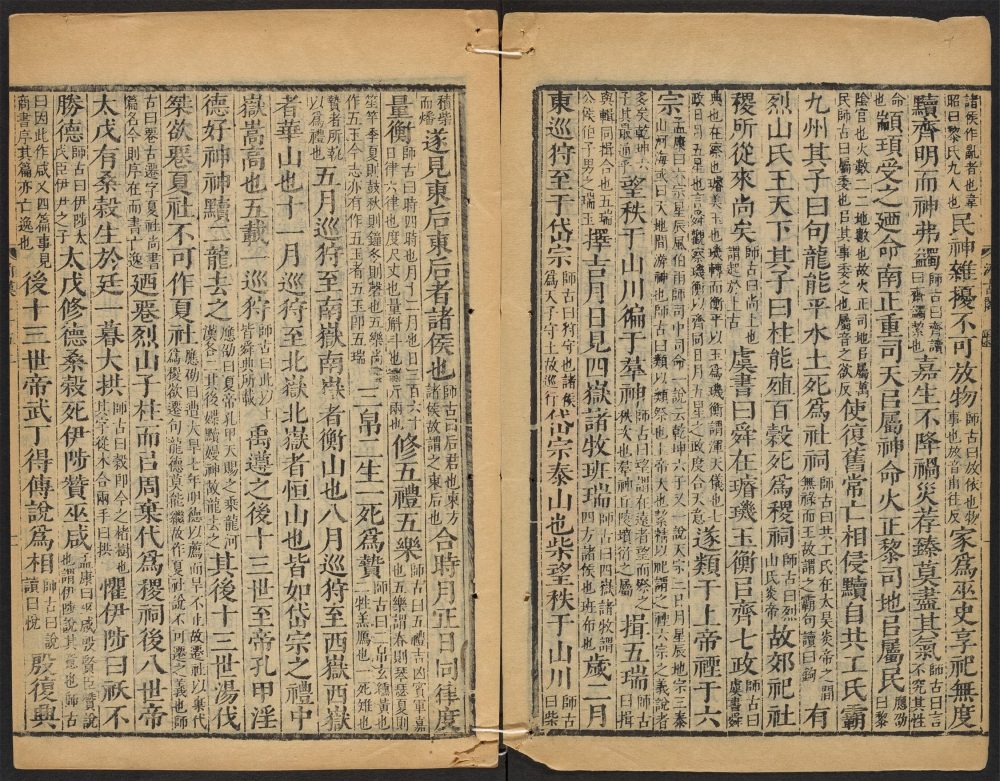 諸侯作亂者也韋昭曰黎氏九人也 民神雜擾不可放物 師古曰放依也物事也放音甫往反 家爲巫史享祀無度
黷齊明而神弗蠲 師古曰齊讀曰齋蠲絜也 嘉生不降禍災荐臻莫盡其氣 師古曰言不究其性
命也 顓頊受之廼命南正重司天㠯屬神命火正黎司地㠯屬民 應劭曰黎
陰官也火數二二地數也故火正司地㠯屬萬民師古曰屬委也㠯其事委之也屬音之欲反 使復舊常亡相侵黷自共工氏霸
九州其子曰句龍能平水土死爲社祠 師古曰共工氏在太昊炎帝之閒無祿而王故謂之霸句讀曰鉤 有
烈山氏王天下其子曰柱能殖百穀死爲稷祠 師古曰烈山氏炎帝 故郊祀社
稷所從來尚矣 師古曰尚上也謂起於上古 虞書曰舜在璿璣玉衡㠯齊七政 師古曰虞書舜
典也在察也璿美玉也璣轉而衡平以玉爲璣衡謂渾天儀也七政日月五星也言舜觀察璣衡以齊同日月五星之政度合天意 遂類于上帝禋于六
宗 孟康曰六宗星辰風伯雨師司中司命一說云乾坤六子又一說天宗三日月星辰地宗三泰山河海或曰天地閒游神也師古曰類以類祭也上帝天也絜精以祀謂之禋六宗之義說者
多矣乾坤六子其最通乎 望秩于山川徧于羣神 師古曰望謂在遠者望而祭之秩次也羣神丘陵墳衍之屬 揖五瑞 師古曰揖
與輯同揖合也五瑞公侯伯子男之瑞玉 擇吉月日見四嶽諸牧班瑞 師古曰四嶽諸牧謂四方諸侯也班布也 歲二月
東巡狩至于岱宗 師古曰狩守也諸侯爲天子守土故巡行 岱宗泰山也柴望秩于山川 師古曰柴
積柴而燔 遂見東后東后者諸侯也 師古曰后君也東方諸侯故謂之東后也 合時月正日同律度
量衡 師古曰時四時也月十二月也日三百六十日律六律也度尺丈也量斛斗也衡斤兩也 修五禮五樂 師古曰五禮吉凶賓軍嘉也五樂謂春則琴瑟夏則
笙竽季夏則鼓秋則鐘冬則磬也五樂尚書作五玉今志亦有作五玉者五玉卽五瑞 三帛二生一死爲贄 師古曰三帛玄纁黃也二生羔鴈也一死雉也
贄者所執以爲禮也 五月巡狩至南嶽南嶽者衡山也八月巡狩至西嶽西嶽
者華山也十一月巡狩至北嶽北嶽者恒山也皆如岱宗之禮中
嶽嵩高也五載一巡狩 師古曰此以上皆舜典所載 禹遵之後十三世至帝孔甲淫
德好神神黷二龍去之 應劭曰夏帝孔甲天賜之乘龍河漢各二其後媟黷嫚神故龍去之 其後十三世湯伐
桀欲䙴夏社不可作夏社 應劭曰遭大旱七年明德以薦而旱不止故䙴社以棄代爲稷欲遷句龍德莫能繼故作夏社說不可遷之義也師
古曰䙴古遷字夏社尚書篇名今則序在而書亡逸 廼䙴烈山子柱而㠯周棄代爲稷祠後八世帝
太戊有桑穀生於廷一暮大拱 師古曰穀卽今之楮樹也其字從木合兩手曰拱 懼伊陟曰祅不
勝德 師古曰伊陟太戊臣伊尹之子 太戊修德桑穀死伊陟贊巫咸 孟康曰巫咸殷賢臣贊說也謂伊陟說其意也師古
曰因此作咸乂四篇事見商書序其篇亦亡逸也 後十三世帝武丁得傳說爲相 師古曰說讀曰悅 殷復興